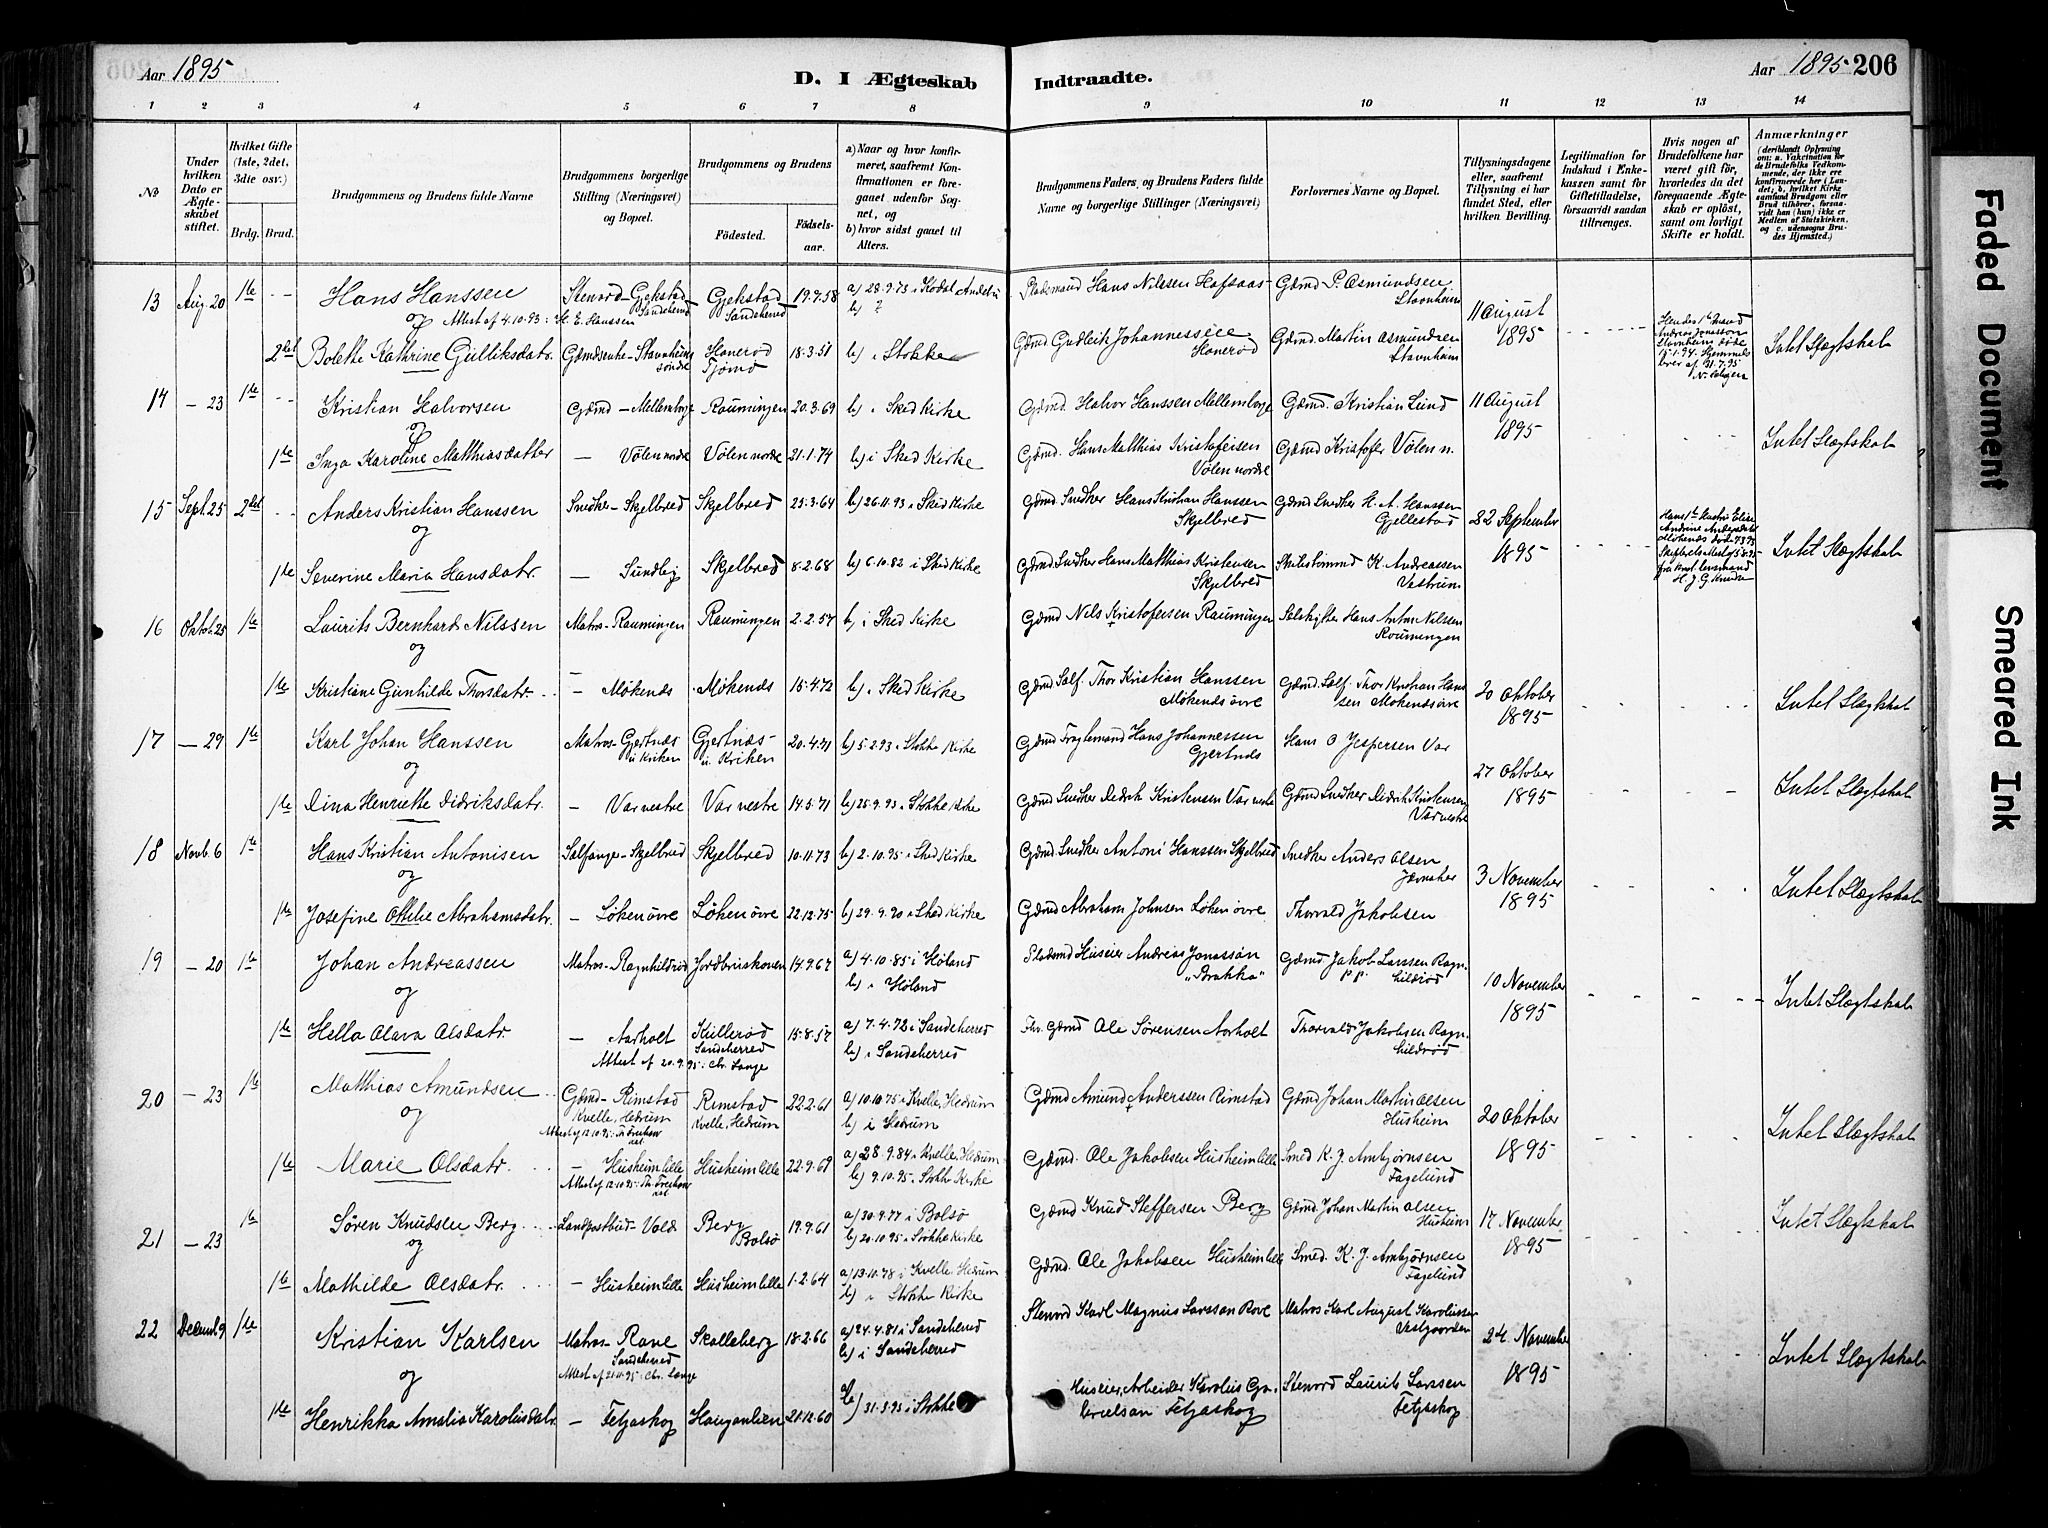 Aar 1895
D. I Ægteskab Indtraadte.
Aar 1895 206
1 2 3 4 5 6 7 8 9 10 11 12 13 14
No
Under hvilken Dato er Ægteskabet stiftet.
Hvilket Gifte (1ste, 2det, 3die osv.)
Brdg. Brud.
Brudgommens og Brudens fulde Navne
Brudgommens borgerlige Stilling (Næringsvei) og Bopæl.
Brudgommens og Brudens
Fødested.
Fødselsaar.
a) Naar og hvor konfirmeret, saafremt Konfirmationen er foregaaet udenfor Sognet, og
b) hvor sidst gaaet til Alters.
Brudgommens Faders og Brudens Faders fulde Navne og borgerlige Stillinger (Næringsvei)
Forlovernes Navne og Bopæl.
Tillysningsdagene eller, saafremt Tillysning ei har fundet Sted, efter hvilken Bevilling.
Legitimation for Indskud i Enkekassen samt for Giftetilladelse, forsaavidt saadan tiltrænges.
Hvis nogen af Brudefolkene har været gift før, hvorledes da det foregaaende Ægteskab er opløst, samt om lovligt Skifte er holdt.
Anmærkninger (deriblandt Oplysning om: a. Vakcination for de Brudefolks Vedkommende, der ikke ere konfirmerede her i Landet; b. hvilket Kirkesamfund Brudgom eller Brud tilhører, forsaavidt han (hun) ikke er Medlem af Statskirken, og c. udensogns Brudes Hjemsted.)
13 Aug. 20 1ste -- Hans Hanssen Stenord - Gjekstad Sandeherred Gjekstad Sandeherred 19.7.58 a) 28.9.73 i Kodal Andebu b) ? Pladsmand Hans Nilsen Hafsaas Gdmd P. Asmundsen Stavnheim 11 August 1895
og Attest af 4.10.93: H. E. Hanssen
2det Bolette Kathrine Gulliksdatr. Gdmdsenke - Stavnheim søndre Hanerød 18.3.51 b) i Stokke Gdmd Gudleik Johannessen Hanerød Gdmd. Martin Asmundsen Stavnheim Intet Slægtskab
14 - 23 1ste -- Kristian Halvorsen Gdmd - Mellemborge Raumingen 20.3.69 b) i Skee Kirke Gdmd. Halvor Hanssen Mellemborge Gdmd. Kristian Lund 11 August 1895
og
1ste Inga Karoline Matthiasdatter - Vølen nordre Vølen nordre 21.1.74 b) i Skee Kirke Gdmd. Hans Matthias Kristofersen Vølen nordre Gdmd Kristofer Vølen n. Intet Slægtskab
15 Sept. 25 2det -- Anders Kristian Hanssen Snedker - Skjelbred Skjelbred 23.3.64 b) 26.11.93 i Skee Kirke Gdmd Snedker Hans Kristian Hanssen Skjelbred Gdmd Snedker H. A. Hanssen Gjellestad 22 September 1895
og
1ste Severine Maria Hansdatr. - Sundby Skjelbred 8.2.68 b) 6.10.82 i Skee Kirke Gdmd Snedker Hans Matthias Kristensen Skjelbred K. Andreassen Vestrum Intet Slægtskab
16 Oktob. 25 1ste Laurits Bernhard Nilssen Matros - Raumingen Raumingen 2.2.57 b) i Skee Kirke Gdmd Nils Kristofersen Raumingen Hans Anton Nilssen Raumingen
og
1ste Kristiane Gunhilde Thorsdatr. - Møkenes Møkenes 15.4.72 b) i Skee Kirke Gdmd Thor Kristian Hanssen Møkenes øvre Gdmd Thor Kristian Hanssen Møkenes øvre 20 Oktober 1895 Intet Slægtskab
17 - 29 1ste Karl Johan Hanssen Matros - Gjertnæs u. Kriken Gjertnæs u. Kriken 20.4.71 b) 5.2.93 i Stokke Kirke Gdmd Hans Johannessen Gjertnes Hans O Jespersen Var
og
1ste Dina Henriette Didriksdatr. - Var vestre Var vestre 14.5.71 b) 25.9.93 i Stokke Kirke Gdmd Snedker Didrik Kristensen Var vestre Gdmd Snedker Didrik Kristensen Var vestre 27 Oktober 1895 Intet Slægtskab
18 Novb. 6 1ste Hans Kristian Antonisen Salfanger - Skjelbred Skjelbred 10.11.73 b) 2.10.95 i Skee Kirke Gdmd Snedker Antoni Hanssen Skjelbred Snedker Anders Olsen
og
1ste Josefine Ottilie Abrahamsdatr. - Løken øvre Løken øvre 22.12.75 b) 29.9.90 i Skee Kirke Gdmd Abraham Johnsen Løken øvre Thorvald Jakobsen 3 November 1895 Intet Slægtskab
19 - 20 1ste Johan Andreassen Matros - Ragnhildrød Jordbruskoven 14.9.67 a) 4.10.85 i Høland b) i Høland Pladsmd Huseier Andreas Jonassøn "Brakka" Gdmd Jakob Larssen Ragnhildrød 10 November 1895
og
1ste Hella Olava Olsdatr. - Aarholt Kullerød Sandeherred 15.8.57 a) 7.4.72 i Sandeherred b) i Sandeherred Fhv. Gdmd Ole Sørensen Aarholt Thorvald Jakobsen Ragnhildrød Intet Slægtskab
Attest af 20.9.95: Chr. Lange
20 - 23 1ste Matthias Amundsen Gdmd - Rimstad Kvelle, Hedrum Rimstad Kvelle, Hedrum 22.2.61 a) 10.10.75 i Kvelle, Hedrum b) i Hedrum Gdmd Amund Anderssen Rimstad Gdmd Johan Martin Olsen Husheim 20 Oktober 1895
og
1ste Marie Olsdatr. - Husheim lille Husheim lille 22.9.69 a) 28.9.84 i Kvelle, Hedrum b) 9.10.95 i Stokke Kirke Gdmd. Ole Jakobsen Husheim lille Smed K. J. Ambjørnsen Fagelund Intet Slægtskab
21 - 23 1ste Søren Knudsen Berg Landpostbud - Vold Berg Bolsø 19.9.61 a) 30.9.77 i Bolsø b) 20.10.95 i Stokke Kirke Gdmd Knud Steffersen Berg Gdmd. Johan Martin Olsen Husheim 17 November 1895 Intet Slægtskab
og
1ste Mathilde Olsdatr. - Husheim lille Husheim lille 1.2.64 a) 13.10.78 i Kvelle, Hedrum b) i Stokke Kirke Gdmd. Ole Jakobsen Husheim lille Smed. K. J. Ambjørnsen Fagelund
22 Decemb. 9 1ste Kristian Karlsen Matros - Rove Sandeherred Skalleberg 18.2.66 a) 24.4.81 i Sandeherred b) i Sandeherred Stenord Karl Magnus Larsson Rove Matros Karl August Karolussen Vestgaarden 24. November 1895
og Attest af 21.11.95: Chr. Lange
1ste Henrikka Amalia Karolusdatr. - Feljaskog Hauganlien 21.12.60 b) 31.3.95 i Stokke Huseier, Arbeider Karolus Gabrielsan Feljaskog Stenord Laurits Larssen Feljaskog Intet Slægtskab
Faded Document
Smeared Ink